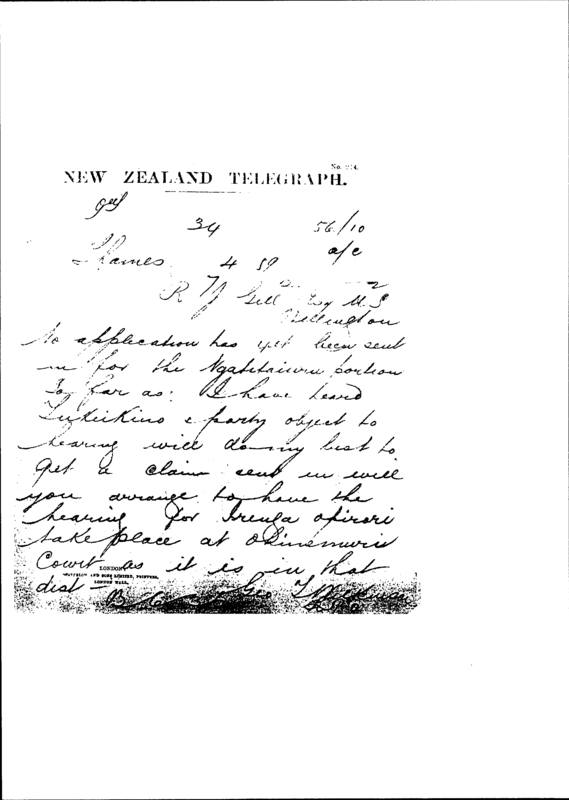 No. 214.
NEW ZEALAND TELEGRAPH.
34 56/10
Thames 4 59 a/c
R J Gill
Wellington
No application has yet been sent
in for the Ngatitaiwru portion
So far as I have heard
Tukukino & party object to
hearing will do my best to
get a claim sent in will
you arrange to have the
hearing for opirori
take place at Ohinemuri
Court as it is in that
LONDON
AND SONS LIMITED, PRINTERS,
LONDON WALL.
dist —
Geo T Wilkinson